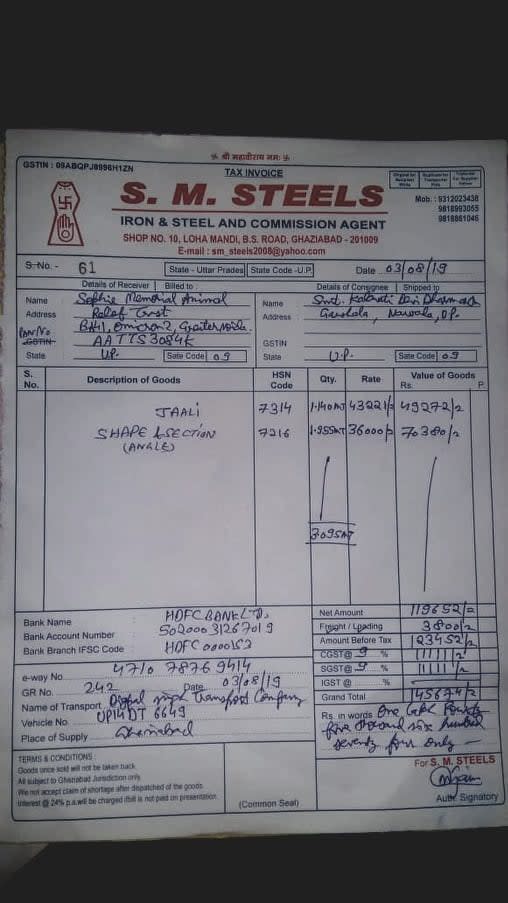 ॐ श्री महावीराय नमः ॐ
GSTIN : 09ABQPJ8996H1ZN
TAX INVOICE
Original for Recipient White
Duplicate for Transporter Pink
Triplicate For Supplier Yellow
S. M. STEELS
Mob. : 9312023438
9818993055
9818861046
IRON & STEEL AND COMMISSION AGENT
SHOP NO. 10, LOHA MANDI, B.S. ROAD, GHAZIABAD - 201009
E-mail : sm_steels2008@yahoo.com
S. No. - 61
State - Uttar Pradesh State Code -U.P.
Date 03/08/19
Details of Receiver Billed to :
Details of Consignee Shipped to
Name Sophie Memorial Animal
Address Relief Trust
BH41, Omicron 2, Greater Noida.
Pan No GSTIN AATTS3084K
State U.P. Sate Code 09
Name Smt. Devi
Address
GSTIN
State U.P. Sate Code 09
S. No. Description of Goods HSN Code Qty. Rate Value of Goods Rs. P.
JAALI 7314 1.140MT 43221/2 49272/2
SHAPE & SECTION 7216 1.955MT 36000/2 70380/2
(ANGLE)
3.095MT
Bank Name : HDFC BANK LTD.
Bank Account Number : 50200031267019
Bank Branch IFSC Code : HDFC0000153
Net Amount 119652/2
Freight / Loading 3800/2
Amount Before Tax 123452/2
CGST@ 9 % 11111/2
SGST@ 9 % 11111/2
IGST @ %
Grand Total 145674/2
e-way No. 4710 7876 9414
GR No. 242 Date 03/08/19
Name of Transport Transport Company
Vehicle No. UP14DT 6649
Place of Supply Ghaziabad
Rs. in words One Lakh Fourty
five thousand six hundred
seventy four only —
TERMS & CONDITIONS :
Goods once sold will not be taken back.
All subject to Ghaziabad Jurisdiction only.
We not accept claim of shortage after dispatched of the goods.
Interest @ 24% p.a.will be charged ifbill is not paid on presentation.
(Common Seal)
For S. M. STEELS
Auth. Signatory